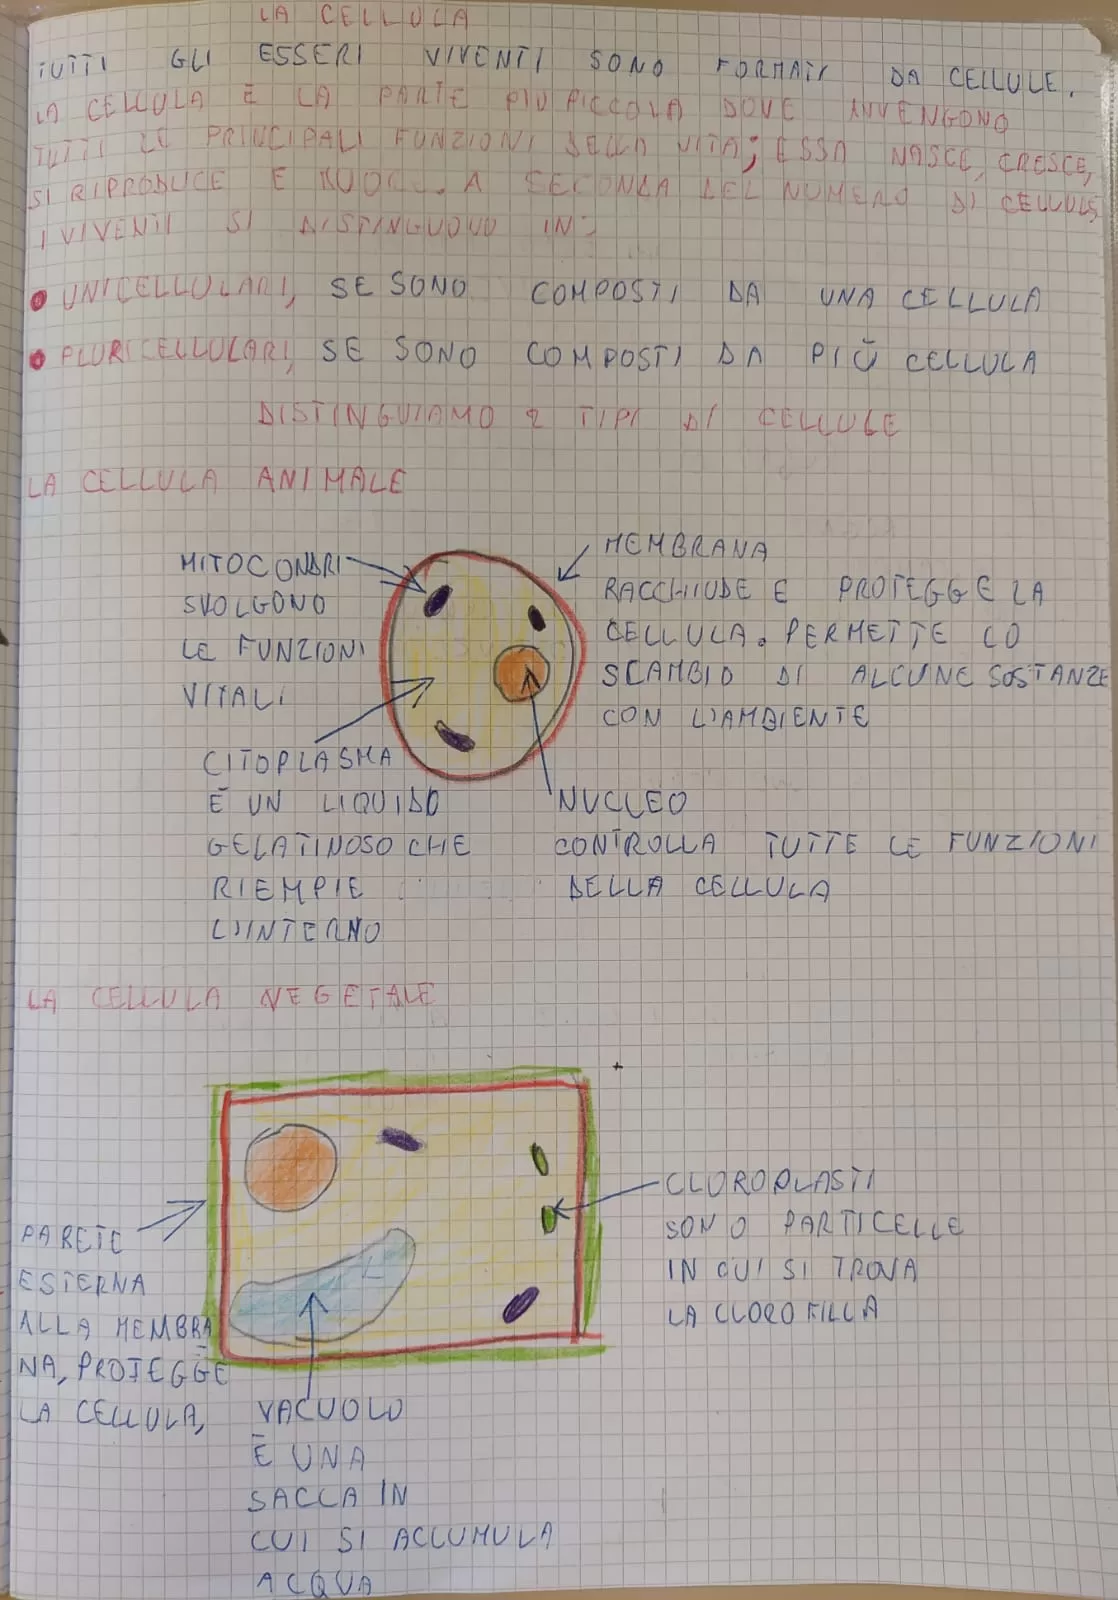 LA CELLULA
TUTTI GLI ESSERI VIVENTI SONO FORMATI DA CELLULE.
LA CELLULA È LA PARTE PIÙ PICCOLA DOVE AVVENGONO
TUTTI LE PRINCIPALI FUNZIONI DELLA VITA; ESSA NASCE, CRESCE,
SI RIPRODUCE E MUORE. A SECONDA DEL NUMERO DI CELLULE
I VIVENTI SI DISTINGUOVO IN:
• UNICELLULARI, SE SONO COMPOSTI DA UNA CELLULA
• PLURICELLULARI, SE SONO COMPOSTI DA PIÙ CELLULA
DISTINGUIAMO 2 TIPI DI CELLULE
LA CELLULA ANIMALE
MITOCONDRI
SVOLGONO
LE FUNZIONI
VITALI
MEMBRANA
RACCHIUDE E PROTEGGE LA
CELLULA. PERMETTE LO
SCAMBIO DI ALCUNE SOSTANZE
CON L'AMBIENTE
CITOPLASMA
È UN LIQUIDO
GELATINOSO CHE
RIEMPIE
L'INTERNO
NUCLEO
CONTROLLA TUTTE LE FUNZIONI
DELLA CELLULA
LA CELLULA VEGETALE
PARETE
ESTERNA
ALLA MEMBRA
NA, PROTEGGE
LA CELLULA,
CLOROPLASTI
SONO PARTICELLE
IN CUI SI TROVA
LA CLOROFILLA
VACUOLO
È UNA
SACCA IN
CUI SI ACCUMULA
ACQUA